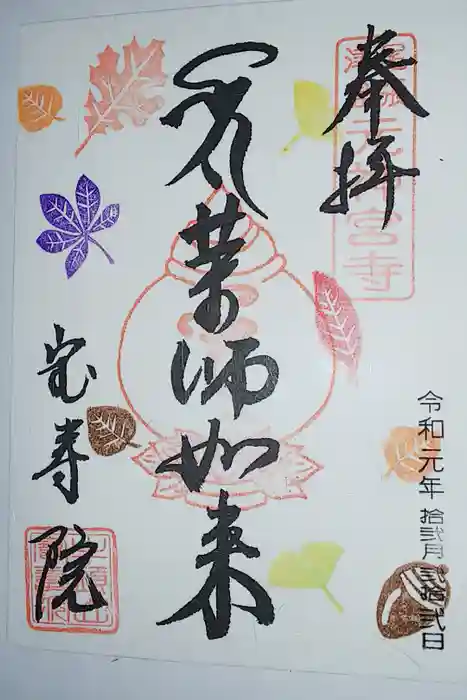 奉拝
薬師如来
宝寿院
令和元年拾弐月弐拾弐日